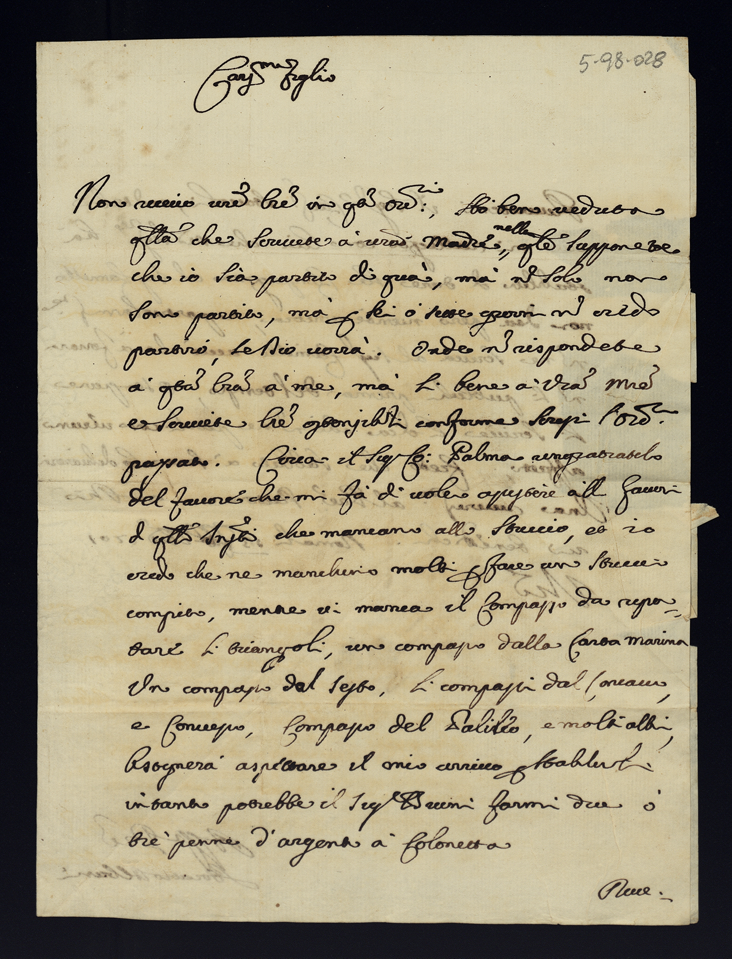 5-98-028
Car.mo figlio
Non ricevo vre lre in qto ord.i, stò ben veduta
qlla che scrivete à vra Madre, nella qle supponete
che io sia partito di quà, mà nò solo non
son partito, mà p sei ò sette giorni nò credo
partirò, se Dio vorrà. Onde nò rispondete
à qta lra à me, mà sì bene à Vra Mre
e scrivete lre conforme scrissi l'ord.o
passato. Circa il Sig. Co: Palma ringratiatelo
del favore che mi fà di voler all favori
d qlli che mancano allo Stuccio, et io
credo che ne manchino molti p fare un Stuccio
compito, mentre vi manca il Compasso da ripor-
tare li triangoli, un compasso dalla Carta marina
Un compasso dal Sesto, li compassi dal Concavo,
e Convesso, Compasso del Galileo, e molti altri,
bisognerà aspettare il mio arrivo p stabilirli.
intanto potrebbe il Sig. farmi due ò
trè penne d'argento à Colonetta